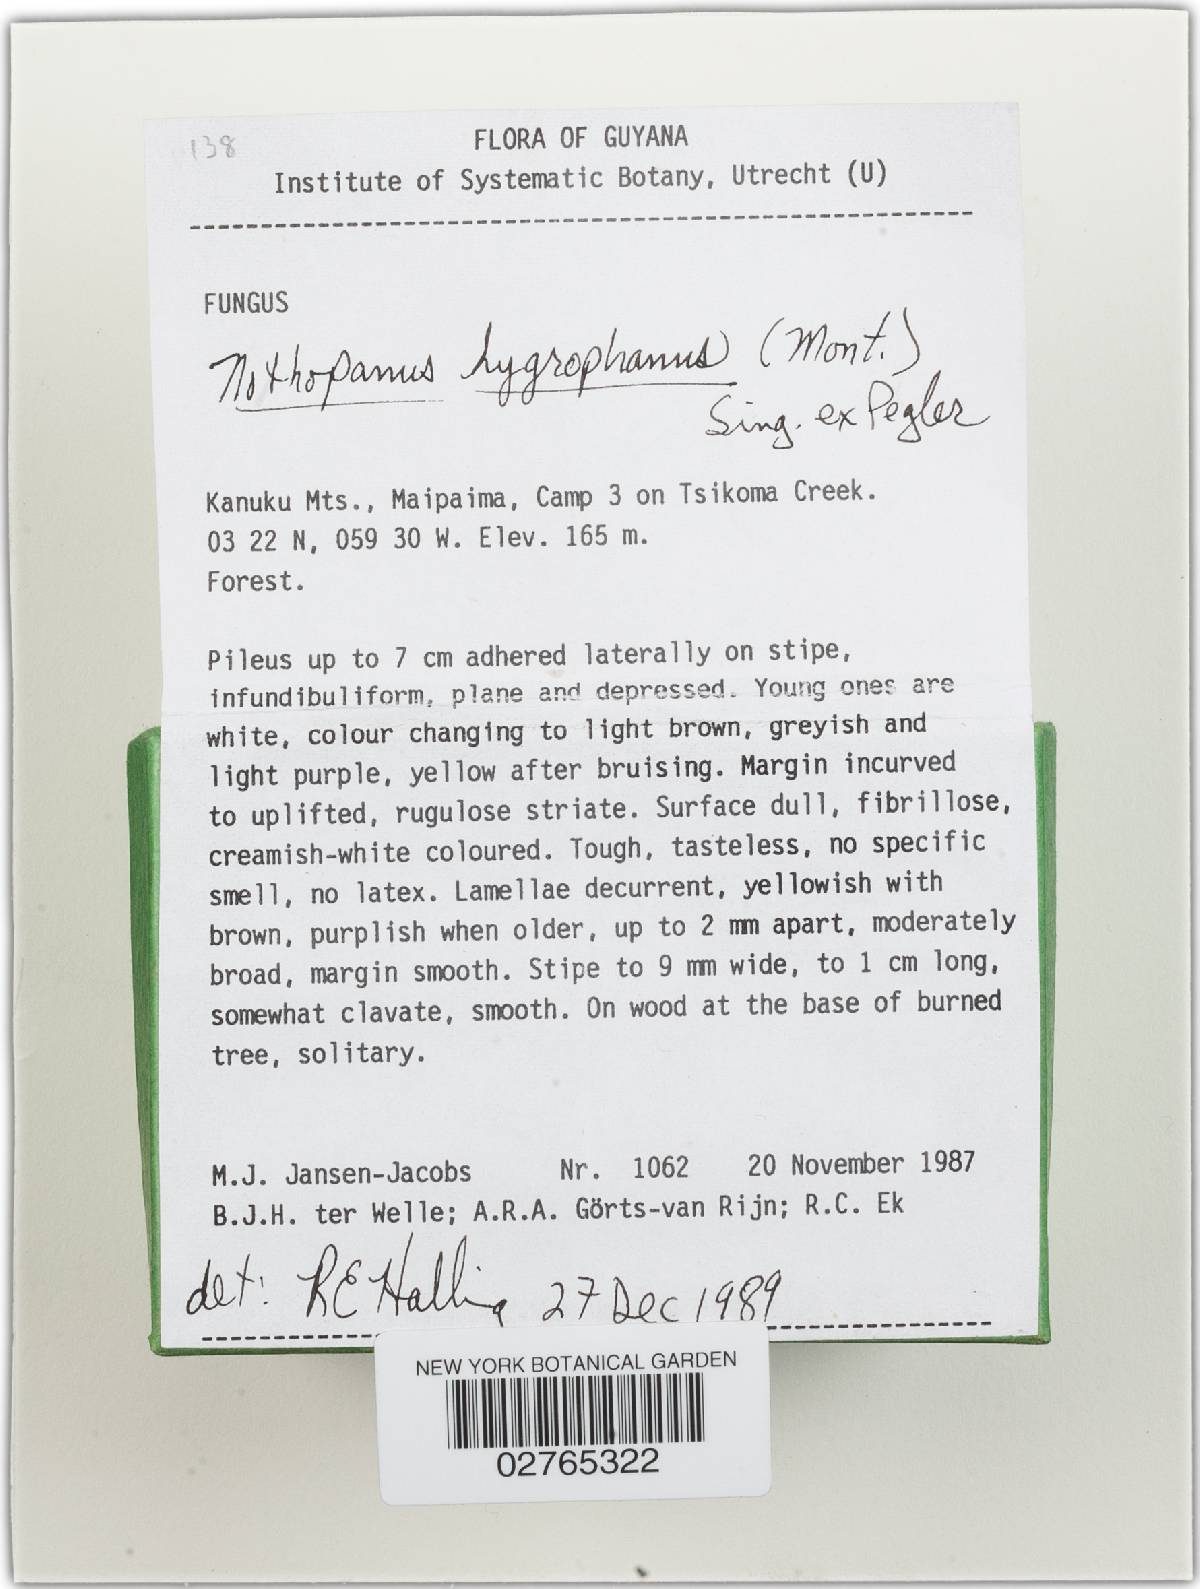 138
FLORA OF GUYANA
Institute of Systematic Botany, Utrecht (U)
FUNGUS
Nothopanus hygrophanus (Mont.)
Sing. ex Pegler
Kanuku Mts., Maipaima, Camp 3 on Tsikoma Creek.
03 22 N, 059 30 W. Elev. 165 m.
Forest.
Pileus up to 7 cm adhered laterally on stipe,
infundibuliform, plane and depressed. Young ones are
white, colour changing to light brown, greyish and
light purple, yellow after bruising. Margin incurved
to uplifted, rugulose striate. Surface dull, fibrillose,
creamish-white coloured. Tough, tasteless, no specific
smell, no latex. Lamellae decurrent, yellowish with
brown, purplish when older, up to 2 mm apart, moderately
broad, margin smooth. Stipe to 9 mm wide, to 1 cm long,
somewhat clavate, smooth. On wood at the base of burned
tree, solitary.
M.J. Jansen-Jacobs Nr. 1062 20 November 1987
B.J.H. ter Welle; A.R.A. Görts-van Rijn; R.C. Ek
det: RE Halling 27 Dec 1989
NEW YORK BOTANICAL GARDEN
02765322